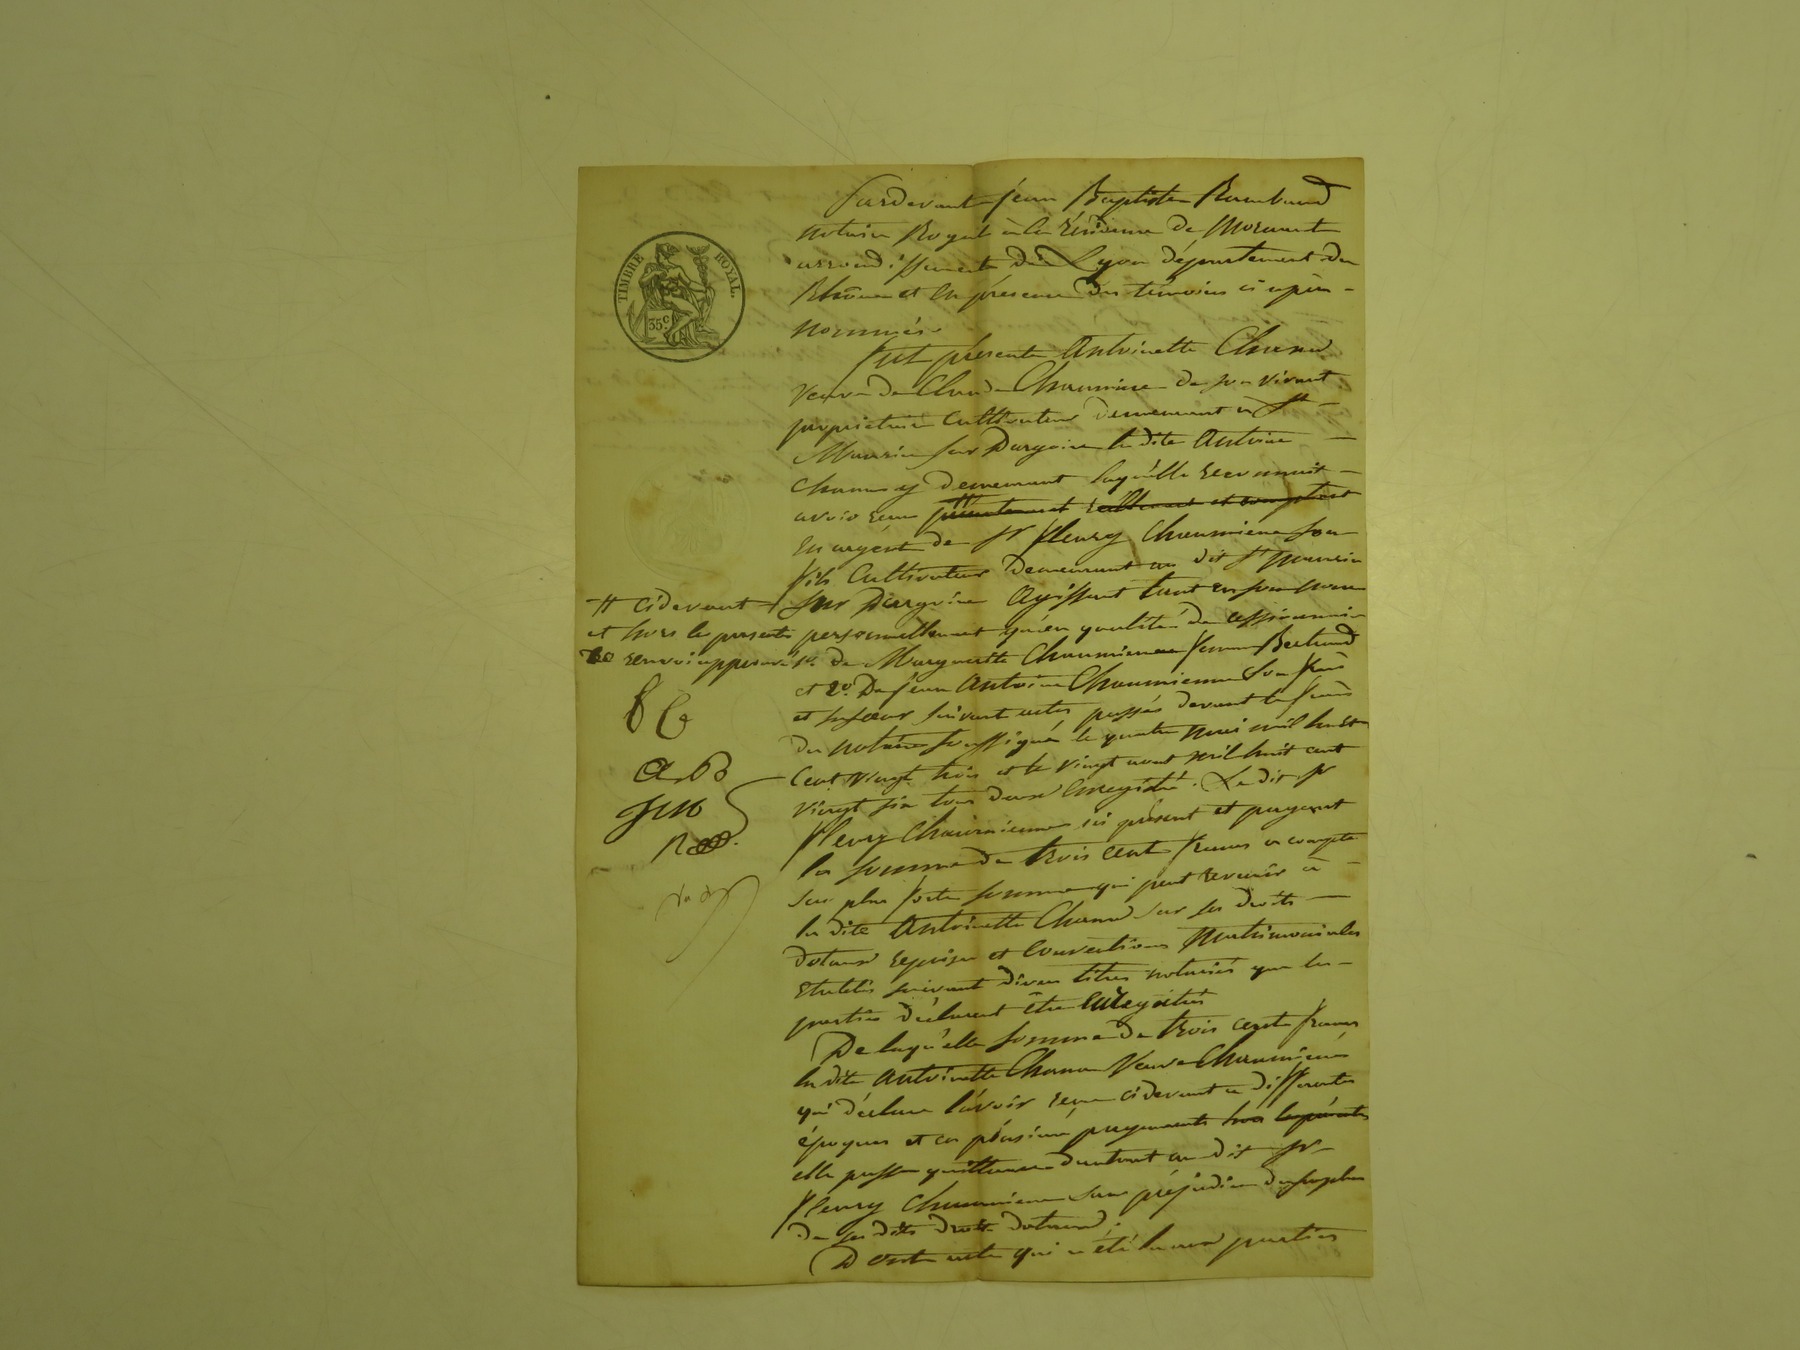 TIMBRE ROYAL.
35c
Pardevant jean Baptiste Rambaud
notaire Royal à la résidence de Mornant
arrondissement de Lyon département du
Rhône et en présence des témoins ci après
nommés.
fut présente Antoinette Chanal
veuve de Claude Chaumienne de son vivant
propriétaire cultivateur demeurant à St
Maurice sur Dargoire la dite Antoine
Chana y demeurant laquelle reconnait
avoir reçu présentement réellement et comptant
en argent de Sr fleury Chaumienne son
fils cultivateur demeurant au dit St Maurice
# cidevant sur Dargoire agissant tant en son nom
et hors les présentes personnellement qu'en qualité de cessionnaire
renvoi approuvé 1o. de Marguerite Chaumienne femme Bertrand
et 2o. De jean Antoine Chaumienne son frère
et sa soeur suivant actes passés devant le
du notaire soussigné le quatre mai mil huit
cent vingt trois et le vingt aout mil huit cent
vingt six tous deux enregistré. Le dit Sr
fleury Chaumienne ici présent et payant
la somme de trois cent francs à compte
sur plus forte somme qui peut revenir à
la dite Antoinette Chanal sur ses droits
dotaux reprises et conventions matrimoniales
établis suivant divers titres notariés que les
parties déclarent être enregistrés
De laquelle somme de trois cents francs
la dite Antoinette Chana veuve Chaumienne
qui déclare l'avoir reçue cidevant à differentes
époques et en plusieurs payements hors les présentes
elle passe quittance d'autant au dit Sr
fleury Chaumienne sans préjudice du surplus
de ses dits droits dotaux.
Dont acte qui a été lu aux parties